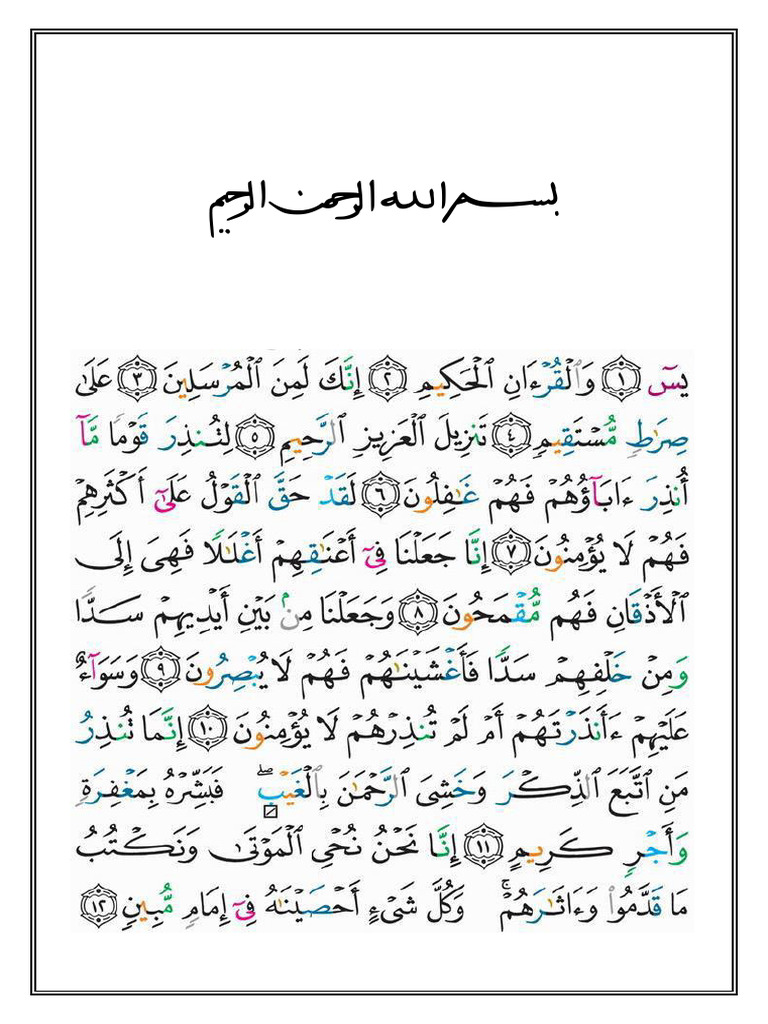 بسم الله الرحمن الرحيم
يسٓ ١ وَٱلۡقُرۡءَانِ ٱلۡحَكِيمِ ٢ إِنَّكَ لَمِنَ ٱلۡمُرۡسَلِينَ ٣ عَلَىٰ
صِرَٰطٖ مُّسۡتَقِيمٖ ٤ تَنزِيلَ ٱلۡعَزِيزِ ٱلرَّحِيمِ ٥ لِتُنذِرَ قَوۡمٗا مَّآ
أُنذِرَ ءَابَآؤُهُمۡ فَهُمۡ غَٰفِلُونَ ٦ لَقَدۡ حَقَّ ٱلۡقَوۡلُ عَلَىٰٓ أَكۡثَرِهِمۡ
فَهُمۡ لَا يُؤۡمِنُونَ ٧ إِنَّا جَعَلۡنَا فِيٓ أَعۡنَٰقِهِمۡ أَغۡلَٰلٗا فَهِيَ إِلَى
ٱلۡأَذۡقَانِ فَهُم مُّقۡمَحُونَ ٨ وَجَعَلۡنَا مِنۢ بَيۡنِ أَيۡدِيهِمۡ سَدّٗا
وَمِنۡ خَلۡفِهِمۡ سَدّٗا فَأَغۡشَيۡنَٰهُمۡ فَهُمۡ لَا يُبۡصِرُونَ ٩ وَسَوَآءٌ
عَلَيۡهِمۡ ءَأَنذَرۡتَهُمۡ أَمۡ لَمۡ تُنذِرۡهُمۡ لَا يُؤۡمِنُونَ ١٠ إِنَّمَا تُنذِرُ
مَنِ ٱتَّبَعَ ٱلذِّكۡرَ وَخَشِيَ ٱلرَّحۡمَٰنَ بِٱلۡغَيۡبِۖ فَبَشِّرۡهُ بِمَغۡفِرَةٖ
وَأَجۡرٖ كَرِيمٍ ١١ إِنَّا نَحۡنُ نُحۡيِ ٱلۡمَوۡتَىٰ وَنَكۡتُبُ
مَا قَدَّمُواْ وَءَاثَٰرَهُمۡۚ وَكُلَّ شَيۡءٍ أَحۡصَيۡنَٰهُ فِيٓ إِمَامٖ مُّبِينٖ ١٢